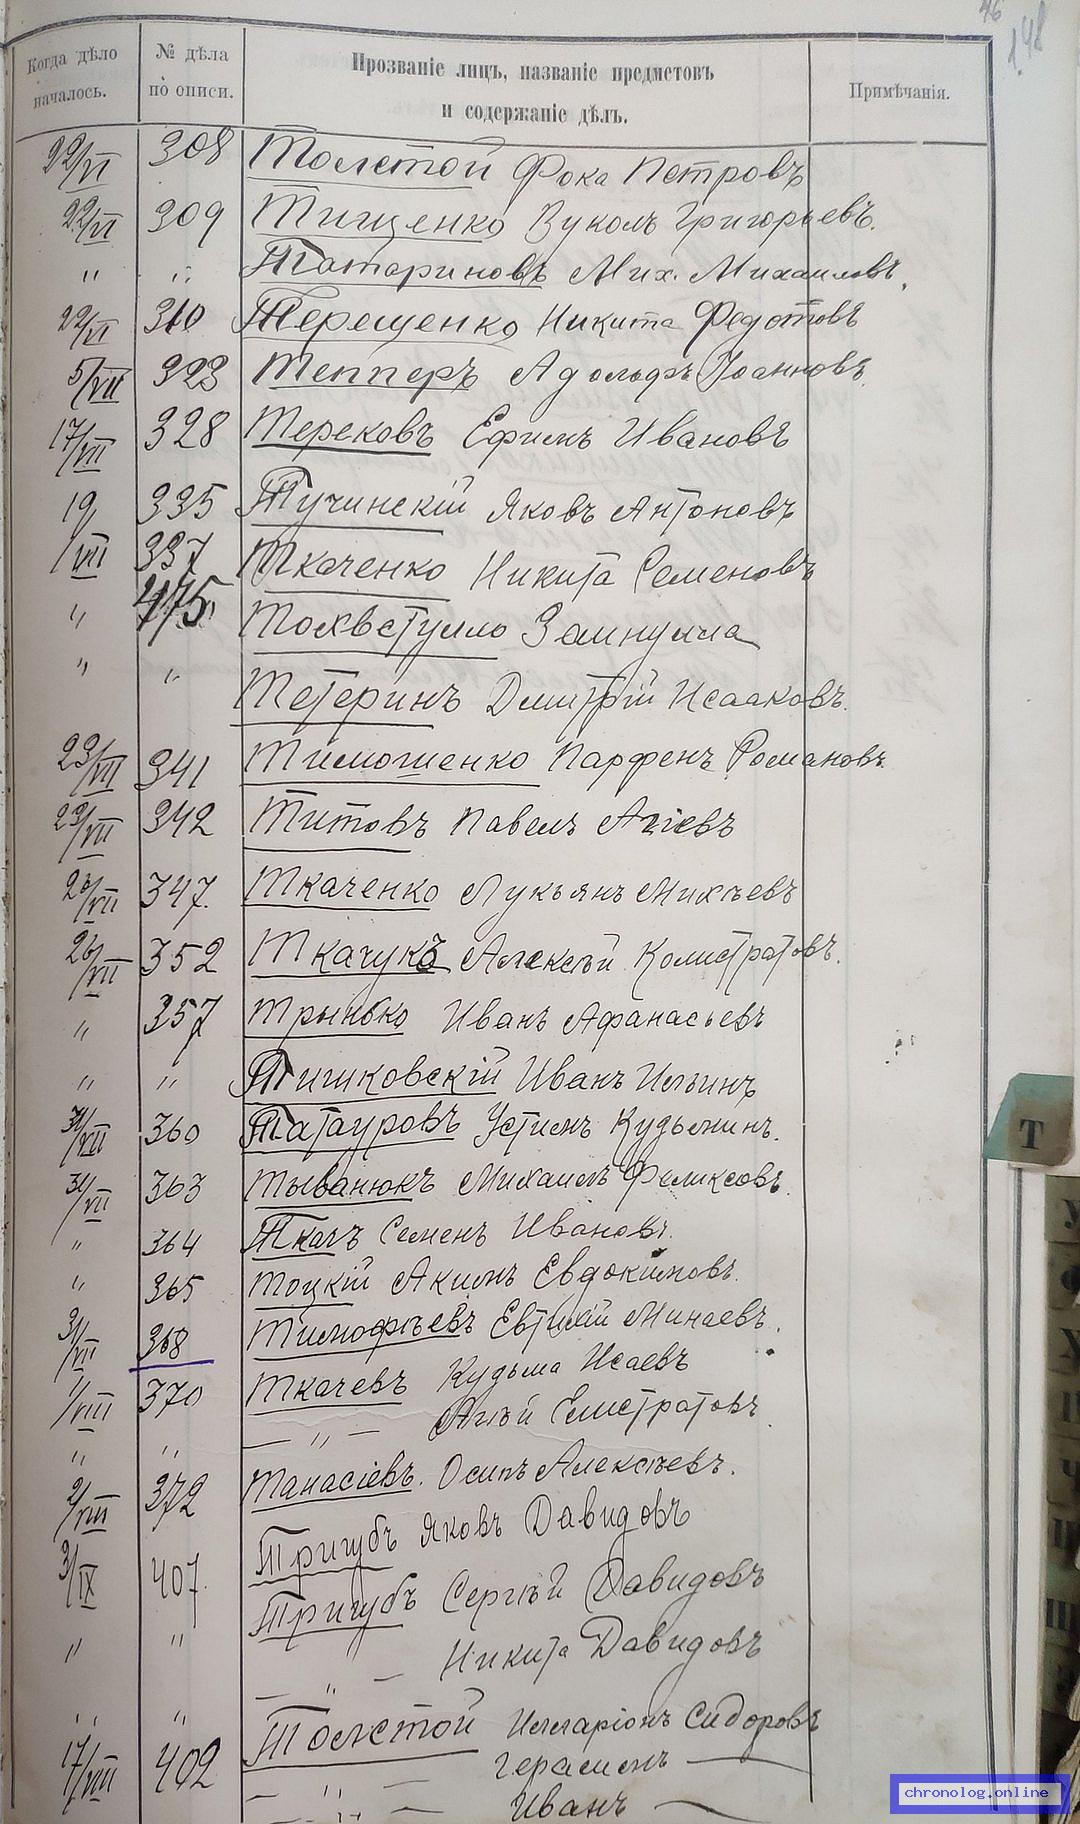 46
л.48
Когда дѣло началось.
№ дѣла по описи.
Прозваніе лицъ, названіе предметовъ
и содержаніе дѣлъ.
Примѣчанія.
22/VI 308 Толстой Фока Петровъ
22/VI 309 Тищенко Вуколъ Григорьевъ.
" " Татариновъ Мих. Михаиловъ.
22/VI 310 Терещенко Никита Федотовъ
5/VII 323 Тепперъ Адольфъ Іоанновъ.
17/VII 328 Терековъ Ефимъ Ивановъ
19/VII 335 Тучинскій Яковъ Антоновъ
337 Ткаченко Никита Семеновъ
" 475 Тохвстулло Зайнулла
" " Тетеринъ Дмитрій Исааковъ.
23/VII 341 Тимошенко Парфенъ Романовъ
23/VII 342 Титовъ Павелъ
26/VII 347. Ткаченко Лукьянъ Михѣевъ
26/VII 352 Ткачукъ Алексѣй Калистратовъ.
" 357 Трынько Иванъ Афанасьевъ
" " Тишковскій Иванъ Ильинъ
31/VII 360 Татауровъ Устимъ Кузьминъ.
31/VII 363 Тыванюкъ Михаилъ Феликсовъ.
" 364 Ткачъ Семенъ Ивановъ.
" 365 Тоцкій Акимъ Евдокимовъ.
31/VII 368 Тимофѣевъ Евтихій Минаевъ.
1/VIII 370 Ткачевъ Кузьма Исаевъ
" " — " — Агѣй Елистратовъ.
2/VIII 372 Танасіевъ. Осипъ Алексѣевъ.
Тригубъ Яковъ Давидовъ
3/IX 407. Тригубъ Сергѣй Давидовъ
" " — " — Никита Давидовъ
" " Толстой Илларіонъ Сидоровъ
17/VIII 402 — " — Герасимъ —
— " — Иванъ —
Т
У
Ф
Х
Ц
Ч
Ш
chronolog.online